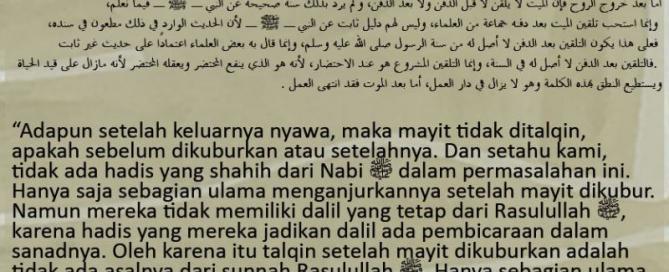 أما بعد خروج الروح فإن الميت لا يلقن لا قبل الدفن ولا بعد الدفن، ولم يرد بذلك سنة صحيحة عن النبي ــ ﷺ ــ فيما نعلم،
وإنما استحب تلقين الميت بعد دفنه جماعة من العلماء، وليس لهم دليل ثابت عن النبي ــ ﷺ ــ لأن الحديث الوارد في ذلك مطعون في سنده،
فعلى هذا يكون التلقين بعد الدفن لا أصل له من سنة الرسول صلى الله عليه وسلم، وإنما قال به بعض العلماء اعتمادا على حديث غير ثابت
.فالتلقين بعد الدفن لا أصل له في السنة، وإنما التلقين المشروع هو عند الاحتضار، لأنه هو الذي ينفع المحتضر ويعقله المحتضر لأنه مازال على قيد الحياة
ويستطيع النطق بهذه الكلمة وهو لا يزال في دار العمل، أما بعد الموت فقد انتهى العمل .
“Adapun setelah keluarnya nyawa, maka mayit tidak ditalqin,
apakah sebelum dikuburkan atau setelahnya. Dan setahu kami,
tidak ada hadis yang shahih dari Nabi ﷺ dalam permasalahan ini.
Hanya saja sebagian ulama menganjurkannya setelah mayit dikubur.
Namun mereka tidak memiliki dalil yang tetap dari Rasulullah ﷺ,
karena hadis yang mereka jadikan dalil ada pembicaraan dalam
sanadnya. Oleh karena itu talqin setelah mayit dikuburkan adalah
tidak ada asalnya dari sunnah Rasulullah ﷺ. Hanya sebagian ulama